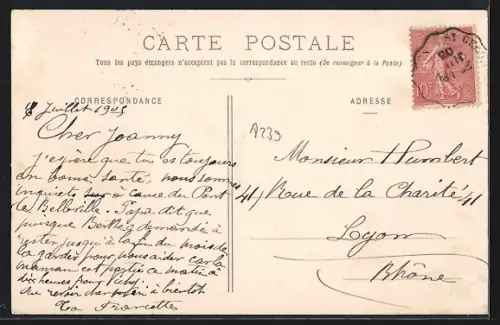 CARTE POSTALE
Tous les pays étrangers n'acceptent pas la correspondance au recto (Se renseigner à la Poste)
CORRESPONDANCE
ADRESSE
8 Juillet 1905
Cher Joanny
J'espère que tu es toujours
en bonne santé, nous sommes
inquiets sur à cause du Pont
de Belleville. Papa dit que
puisque Berthe a demandé à
rester jusqu'à la fin du mois de
la garder pour nous aider car la
maman est partie ce matin à
dix heures pour Vichy.
Au revoir cher à bientôt
Ta Francette
A239
Monsieur Humbert
41 Rue de la Charité 41
Lyon
Rhône
10c